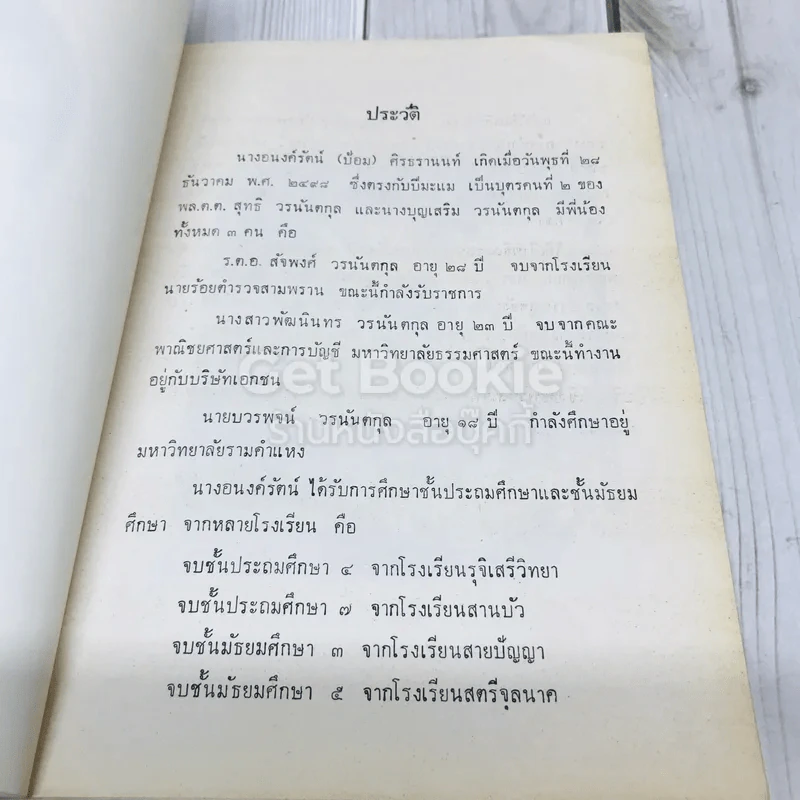 ประวัติ
นางอนงค์รัตน์ (ป้อม) ศิรธรานนท์ เกิดเมื่อวันพุธที่ ๒๘
ธันวาคม พ.ศ. ๒๔๙๘ ซึ่งตรงกับปีมะแม เป็นบุตรคนที่ ๒ ของ
พล.ต.ต. สุทธิ วรนันตกุล และนางบุญเสริม วรนันตกุล มีพี่น้อง
ทั้งหมด ๓ คน คือ
ร.ต.อ. สัจพงศ์ วรนันตกุล อายุ ๒๘ ปี จบจากโรงเรียน
นายร้อยตำรวจสามพราน ขณะนี้กำลังรับราชการ
นางสาวพัฒนินทร วรนันตกุล อายุ ๒๓ ปี จบจากคณะ
พาณิชยศาสตร์และการบัญชี มหาวิทยาลัยธรรมศาสตร์ ขณะนี้ทำงาน
อยู่กับบริษัทเอกชน
Get Bookie
ร้านหนังสือบุ๊คกี้
นายบวรพจน์ วรนันตกุล อายุ ๑๘ ปี กำลังศึกษาอยู่
มหาวิทยาลัยรามคำแหง
นางอนงค์รัตน์ ได้รับการศึกษาชั้นประถมศึกษาและชั้นมัธยม
ศึกษา จากหลายโรงเรียน คือ
จบชั้นประถมศึกษา ๔ จากโรงเรียนรุจิเสรีวิทยา
จบชั้นประถมศึกษา ๗ จากโรงเรียนสานบัว
จบชั้นมัธยมศึกษา ๓ จากโรงเรียนสายปัญญา
จบชั้นมัธยมศึกษา ๕ จากโรงเรียนสตรีจุลนาค